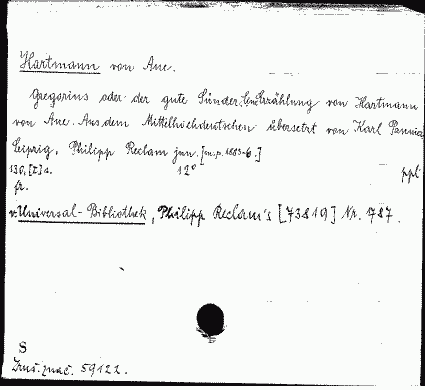 Hartmann von Aue.
Gregorius oder der gute Sünder. Eine Erzählung von Hartmann
von Aue. Aus dem Mittelhochdeutschen übersetzt von Karl Pannier
Leipzig, Philipp Reclam jun. [m.p. 1883-6.]
130, [I] s. 12° ppl.
fr.
v. Universal-Bibliothek, Philipp Reclam's [73819] Nr. 1787.
S
59122.